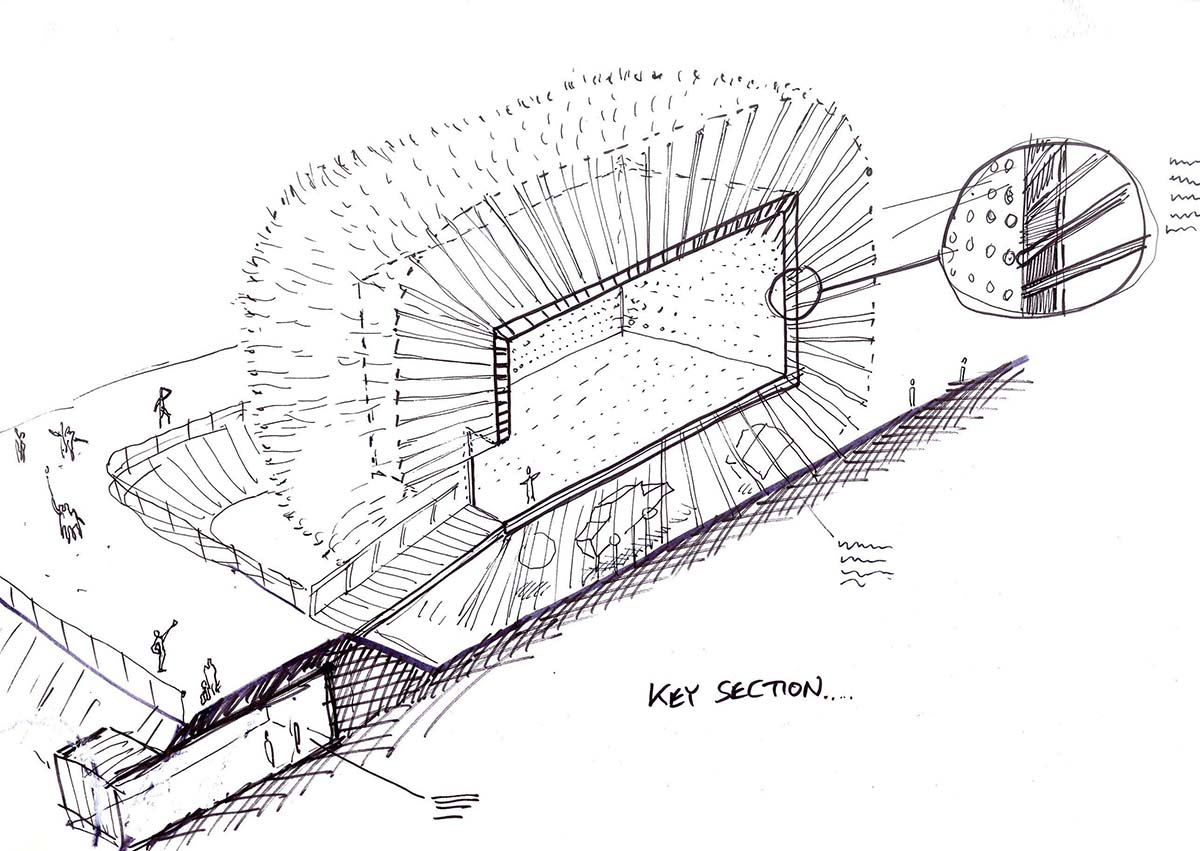 KEY SECTION.....